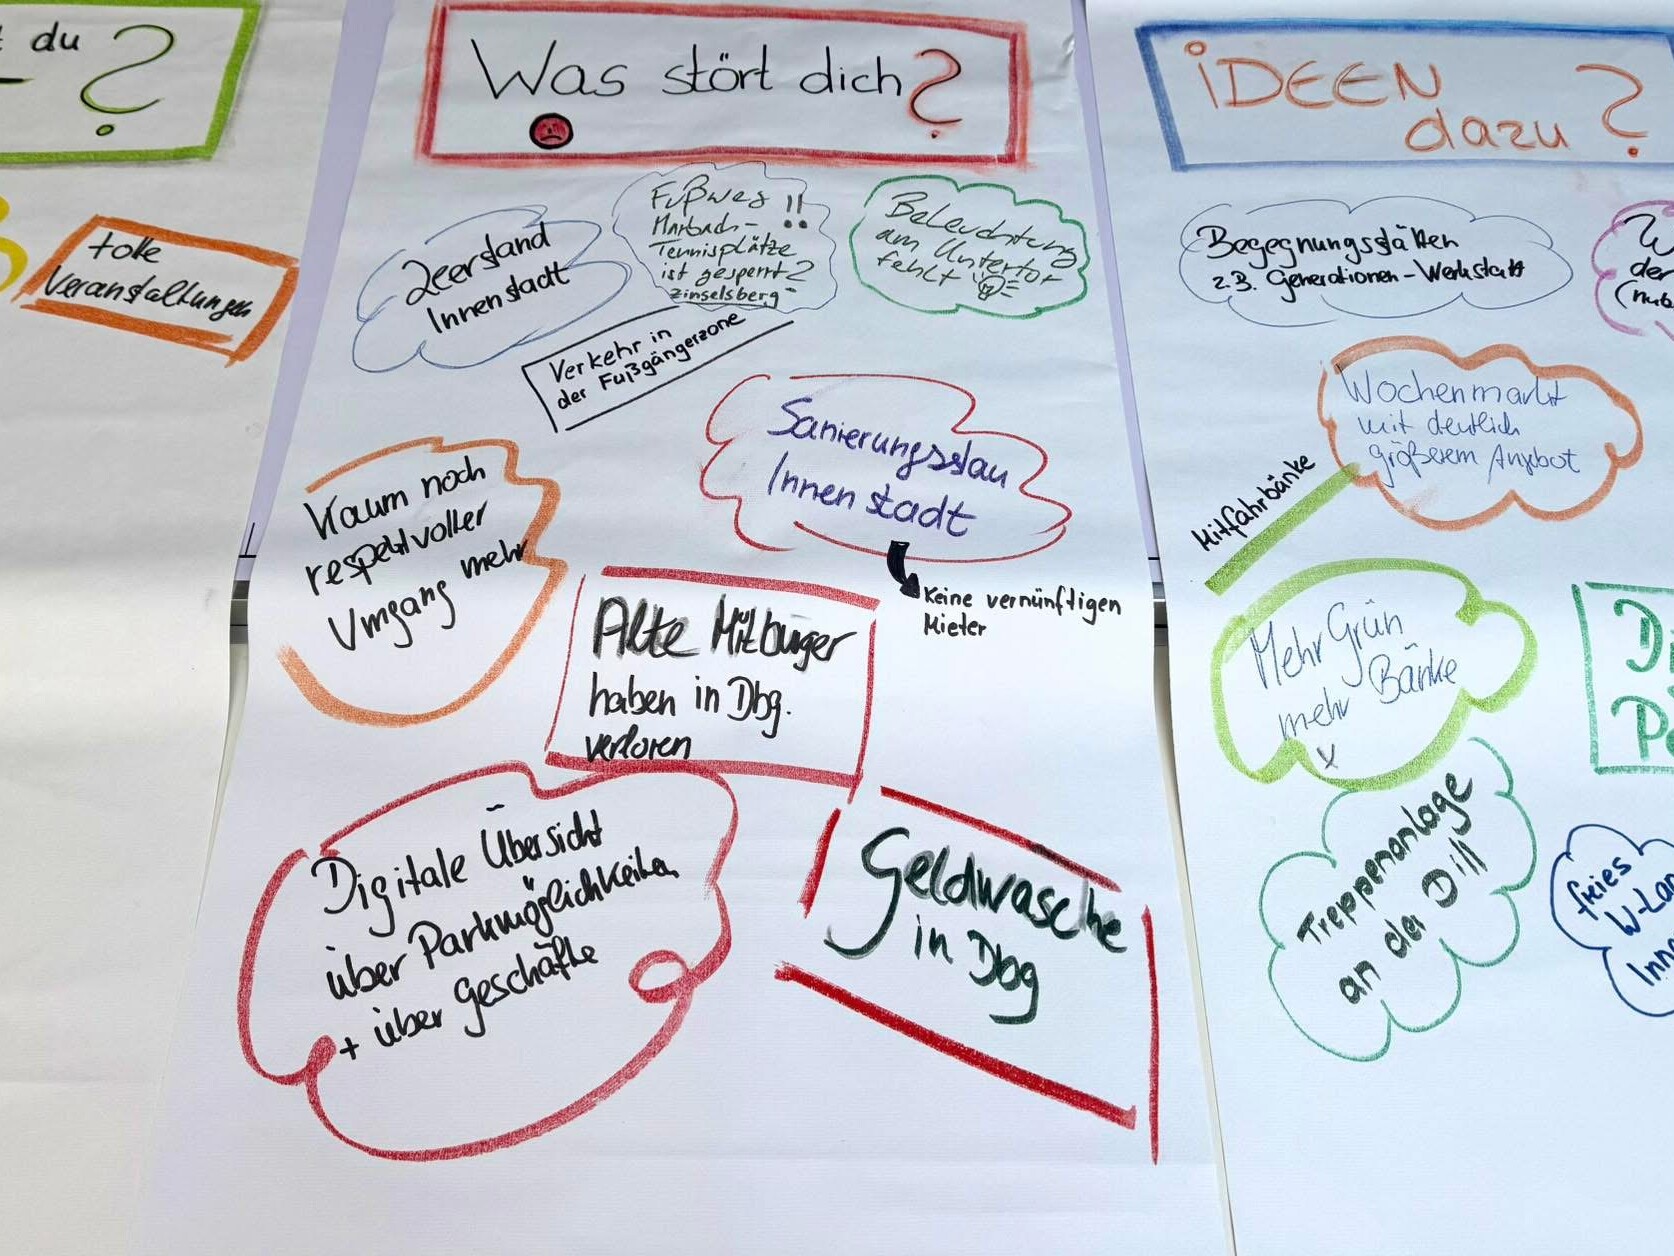 du ?
tolle
Veranstaltungen
Was stört dich ?
Leerstand
Innenstadt
Fußweg !!
Marbach-
Tennisplätze
ist gesperrt?
Zinselsberg
Beleuchtung
am Untertor
fehlt
Verkehr in
der Fußgängerzone
Sanierungsstau
Innenstadt
Keine vernünftigen
Mieter
Kaum noch
respektvoller
Umgang mehr
Alte Mitbürger
haben in Dbg.
verloren
Digitale Übersicht
über Parkmöglichkeiten
+ über Geschäfte
Geldwäsche
in Dbg
iDEEN
dazu ?
Begegnungsstätten
z.B. Generationen-Werkstatt
der
Wochenmarkt
mit deutlich
größerem Angebot
Mitfahrbänke
Mehr Grün
mehr Bänke
x
Treppenanlage
an der Dill
freies
W-Lan